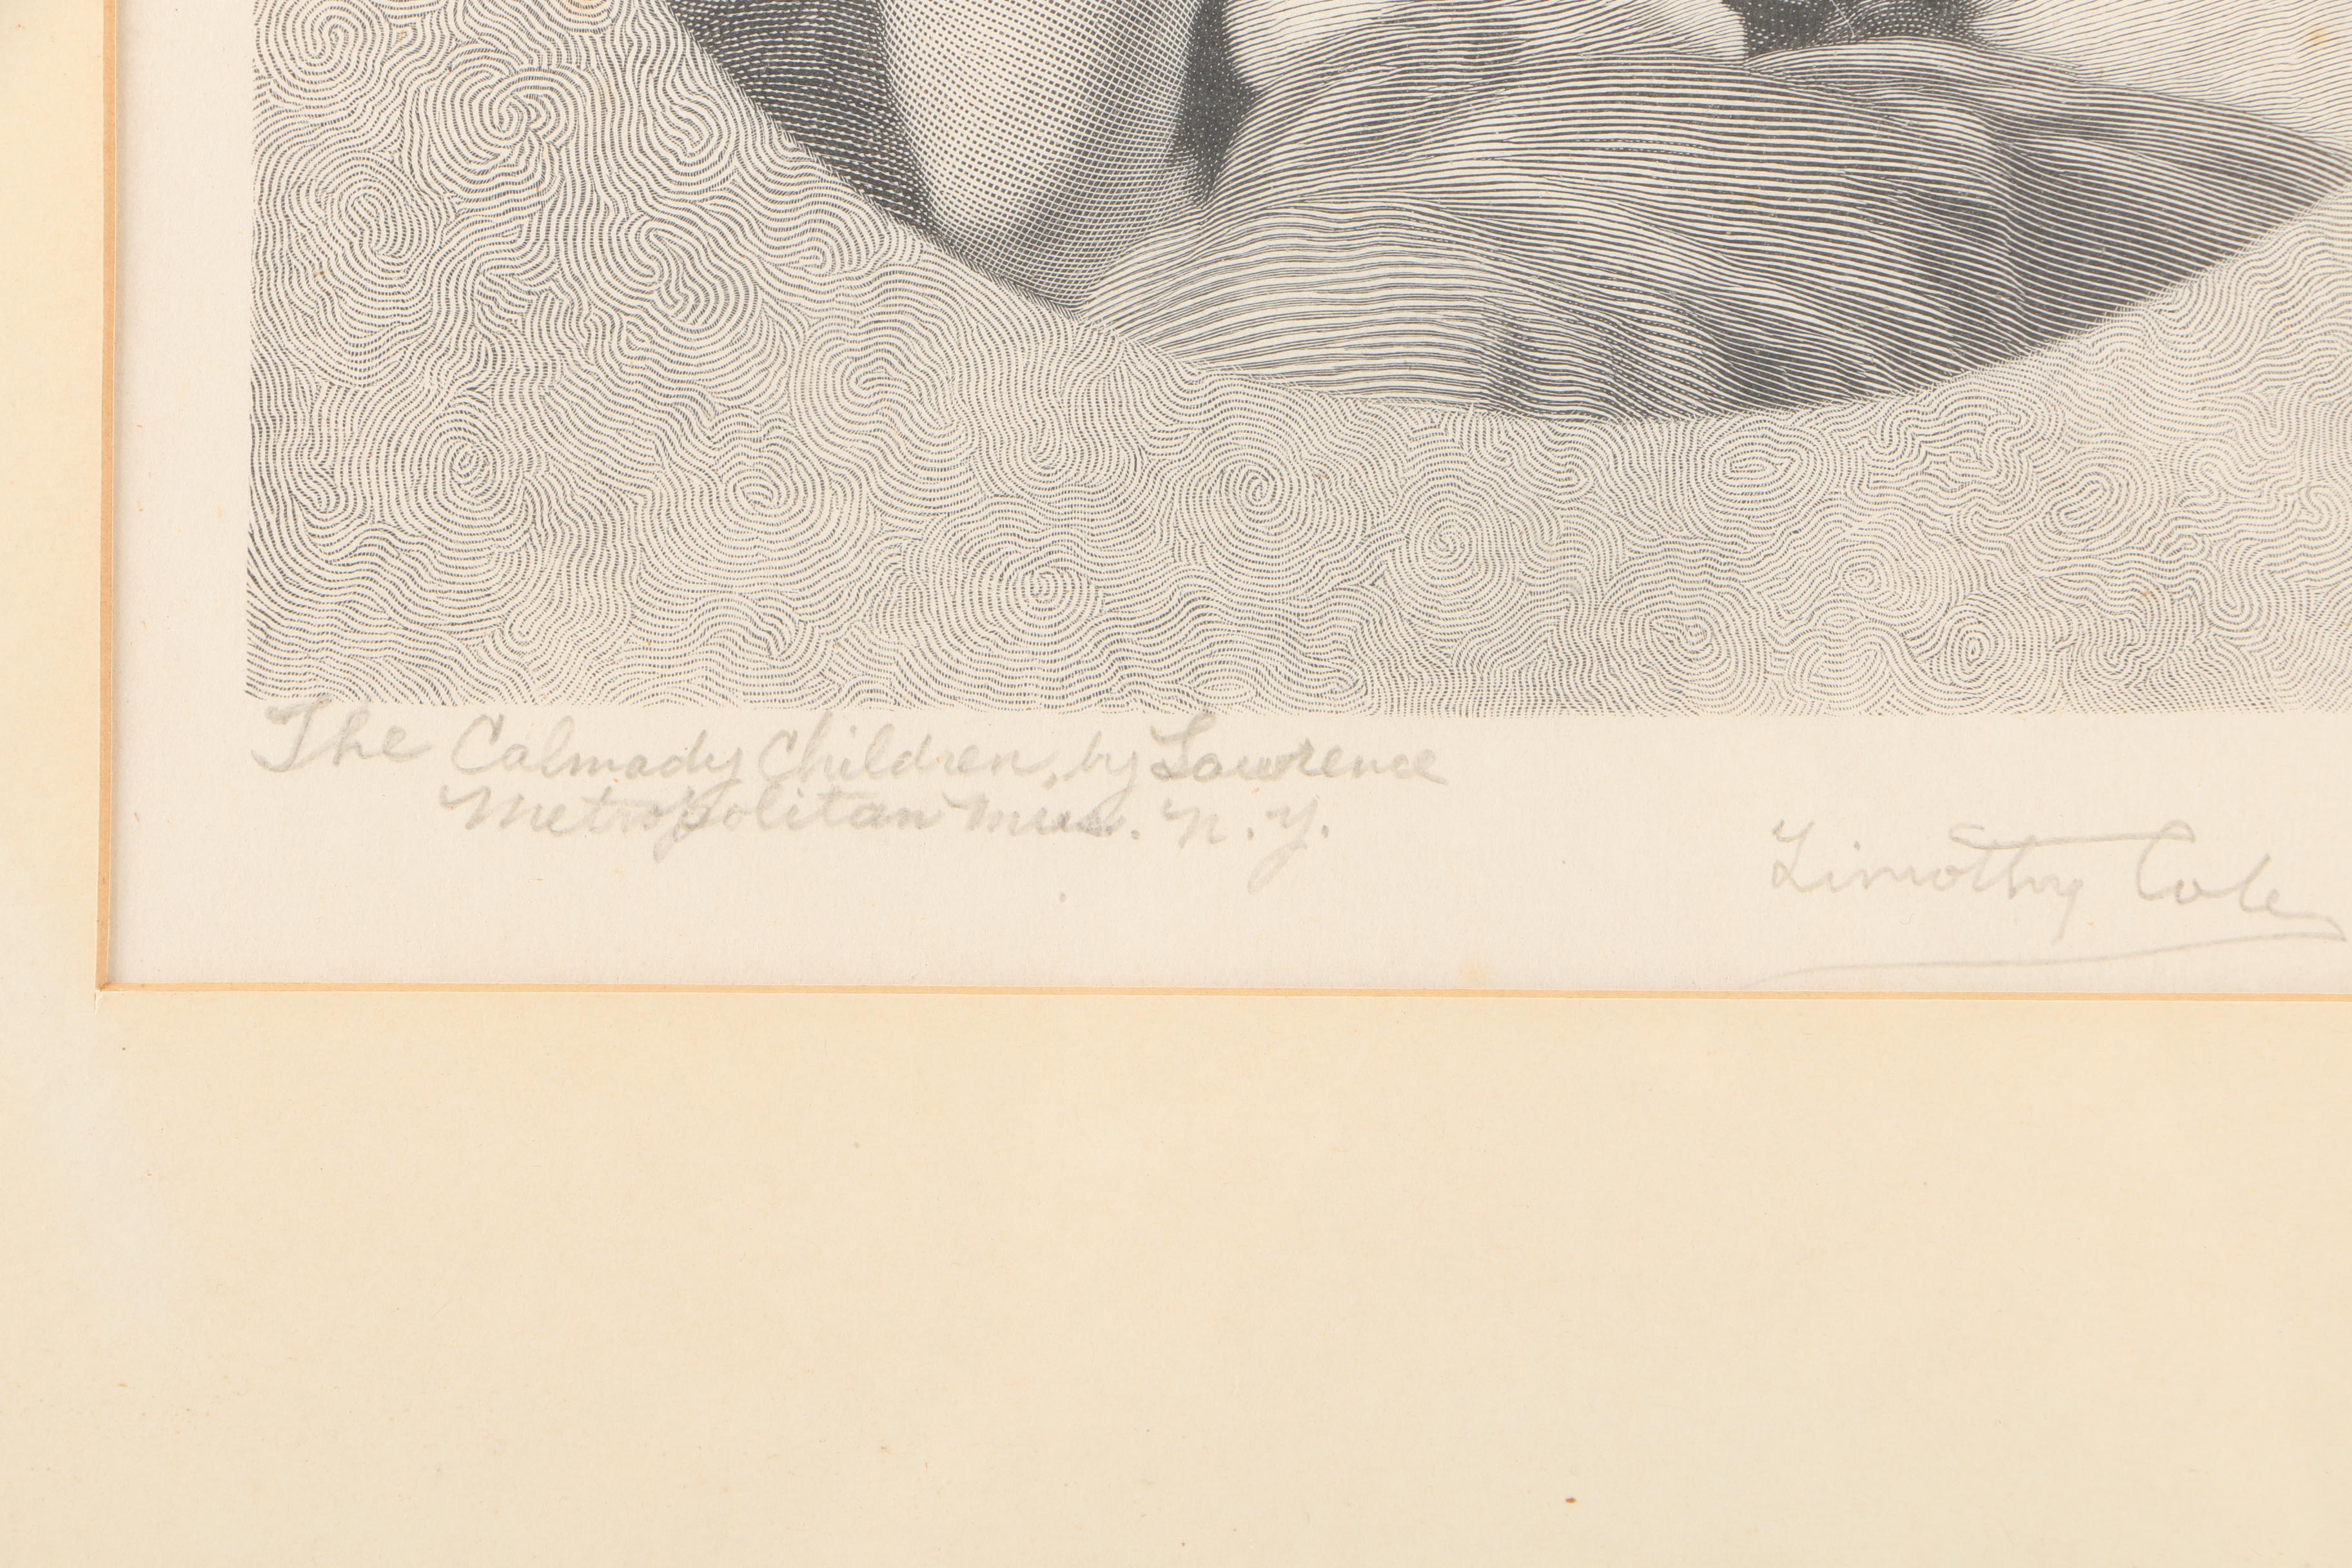 The Calmady Children, by Lawrence
Metropolitan Mus. N.Y.
Timothy Cole